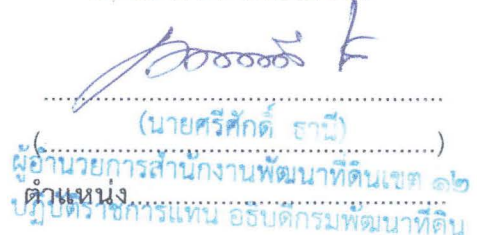 (นายศรีศักดิ์ ธานี)
(....................................................)
ผู้อำนวยการสำนักงานพัฒนาที่ดินเขต ๑๒
ตำแหน่ง....................................................
ปฏิบัติราชการแทน อธิบดีกรมพัฒนาที่ดิน